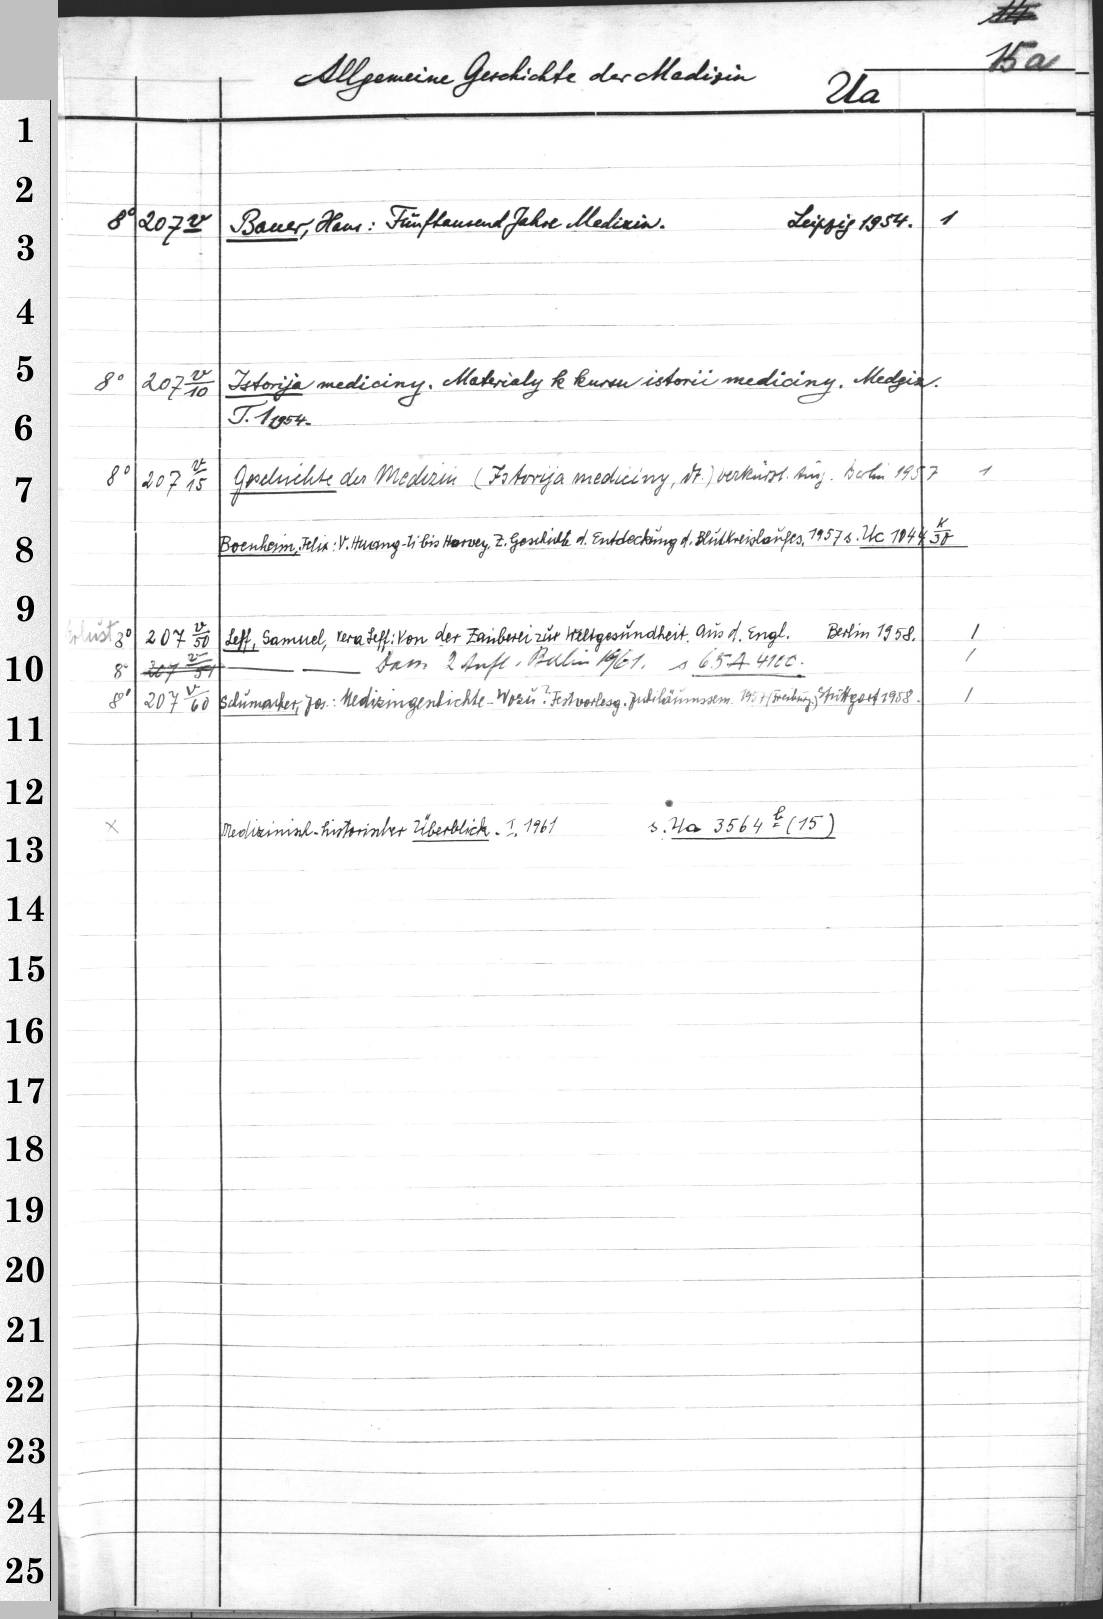 15a
Allgemeine Geschichte der Medizin Ua
1
2
8° 207 v Bauer, Hans: Fünftausend Jahre Medizin. Leipzig 1954. 1
3
4
5
8° 207 v/10 Istorija mediciny. Materialy k kursu istorii mediciny. Medgiz.
T. 1 1954.
6
8° 207 v/15 Geschichte der Medizin (Istorija mediciny, dt.) verkürzt. Ausg. Berlin 1957 1
7
Boenheim, Felix: V. Huang-ti bis Harvey. Z. Geschichte d. Entdeckung d. Blutkreislaufes. 1957 s. Uc 1044 k/50
8
9
Verlust 8° 207 v/50 Leff, Samuel, Vera Leff: Von der Zauberei zur Weltgesundheit. Aus d. Engl. Berlin 1958. 1
10
8° 207 v/51 Dass. 2. Aufl. Berlin 1961. s 65 A 4100. 1
8° 207 v/60 Schumacher, Jos.: Medizingeschichte - Wozu? Festvorlesg. Jubiläumssem. 1957 (Freiburg.) Stuttgart 1958. 1
11
12
x Medizinisch-historischer Überblick. I. 1961 s. Ua 3564 b (15)
13
14
15
16
17
18
19
20
21
22
23
24
25